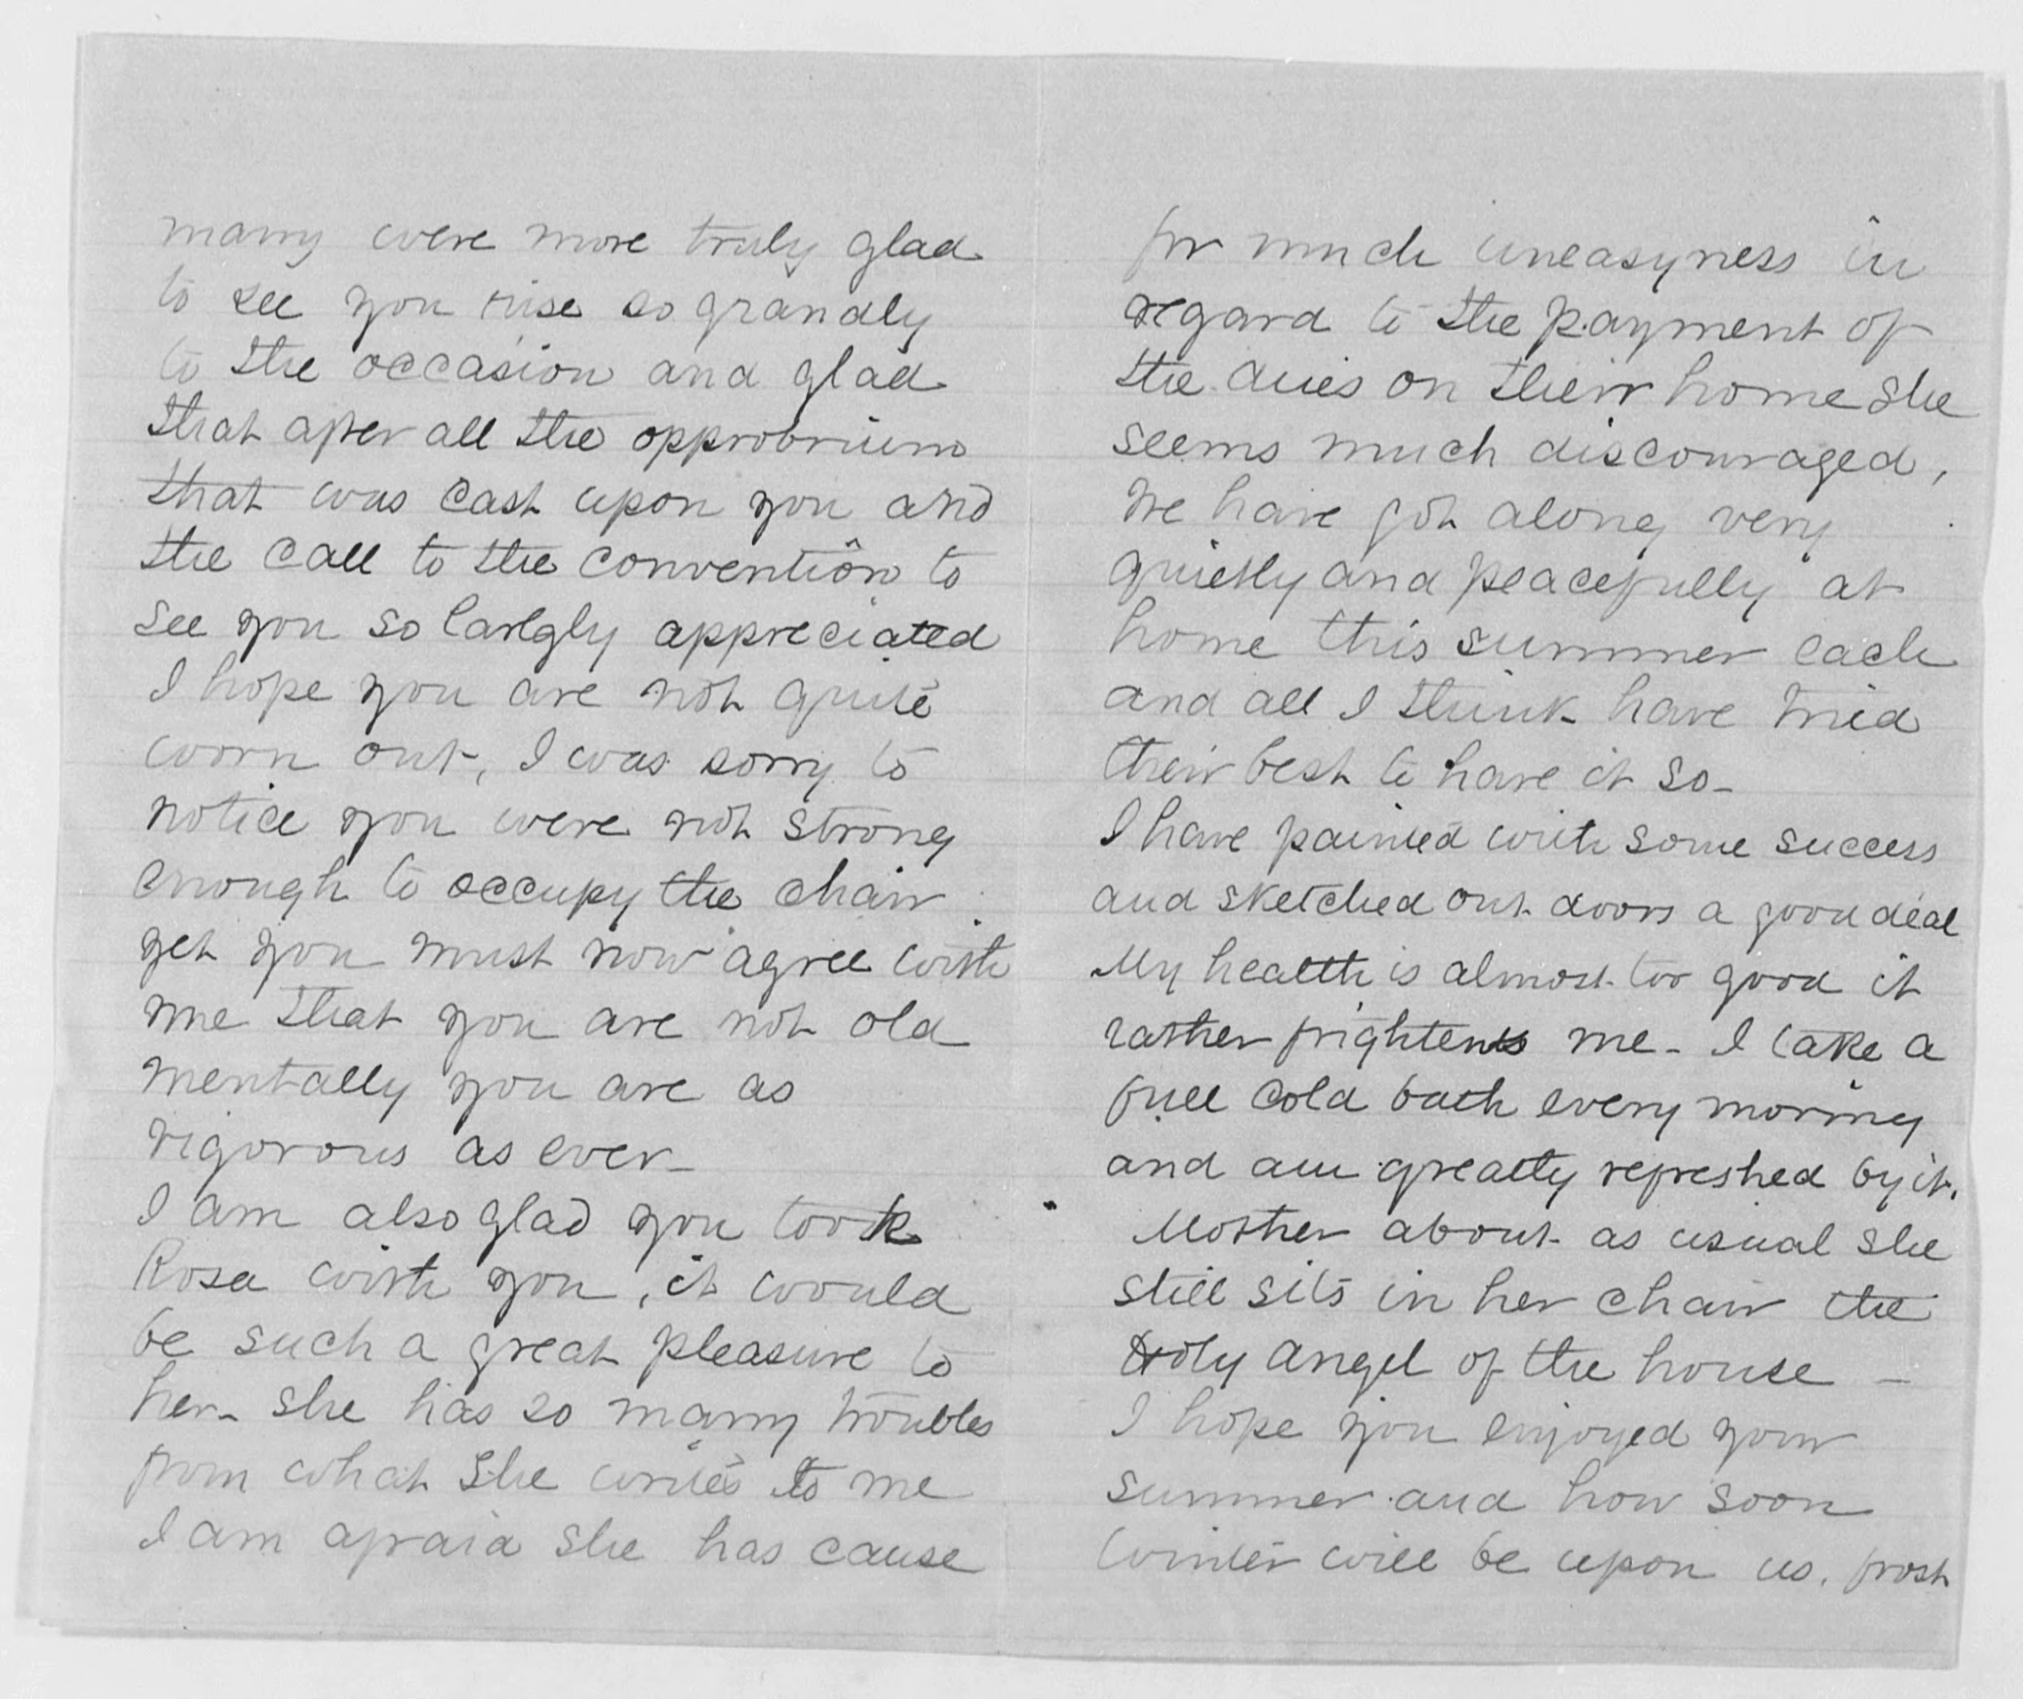 many were more truly glad
to see you rise so grandly
to the occasion and glad
that after all the opprobrium
that was cast upon you and
the call to the convention to
see you so largly appreciated
I hope you are not quite
worn out, I was sorry to
notice you were not strong
enough to occupy the chair
yet you must now agree with
me that you are not old
mentally you are as
vigorous as ever-
I am also glad you took
Rosa with you, it would
be such a great pleasure to
her- she has so many troubles
from what she writes to me
I am afraid she has cause
for much uneasyness in
regard to the payment of
the dues on their home she
seems much discouraged,
We have got along very
quietly and peacefully at
home this summer each
and all I think have tried
their best to have it so-
I have painted with some success
and sketched out doors a good deal
My health is almost too good it
rather frightens me- I take a
full cold bath every morning
and am greatly refreshed by it.
Mother about as usual she
still sits in her chair the
Holy angel of the house -
I hope you enjoyed your
summer and how soon
winter will be upon us. frost